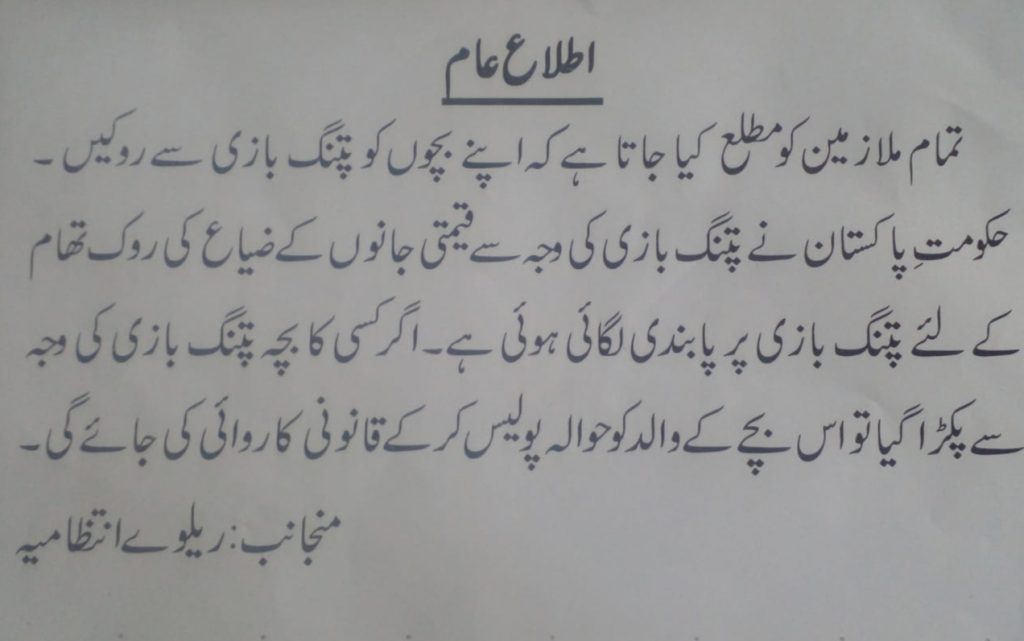 اطلاع عام
تمام ملازمین کو مطلع کیا جاتا ہے کہ اپنے بچوں کو پتنگ بازی سے روکیں ۔
حکومتِ پاکستان نے پتنگ بازی کی وجہ سے قیمتی جانوں کے ضیاع کی روک تھام
کے لئے پتنگ بازی پر پابندی لگائی ہوئی ہے۔ اگر کسی کا بچہ پتنگ بازی کی وجہ
سے پکڑا گیا تو اس بچے کے والد کو حوالہ پولیس کر کے قانونی کاروائی کی جائے گی۔
منجانب: ریلوے انتظامیہ